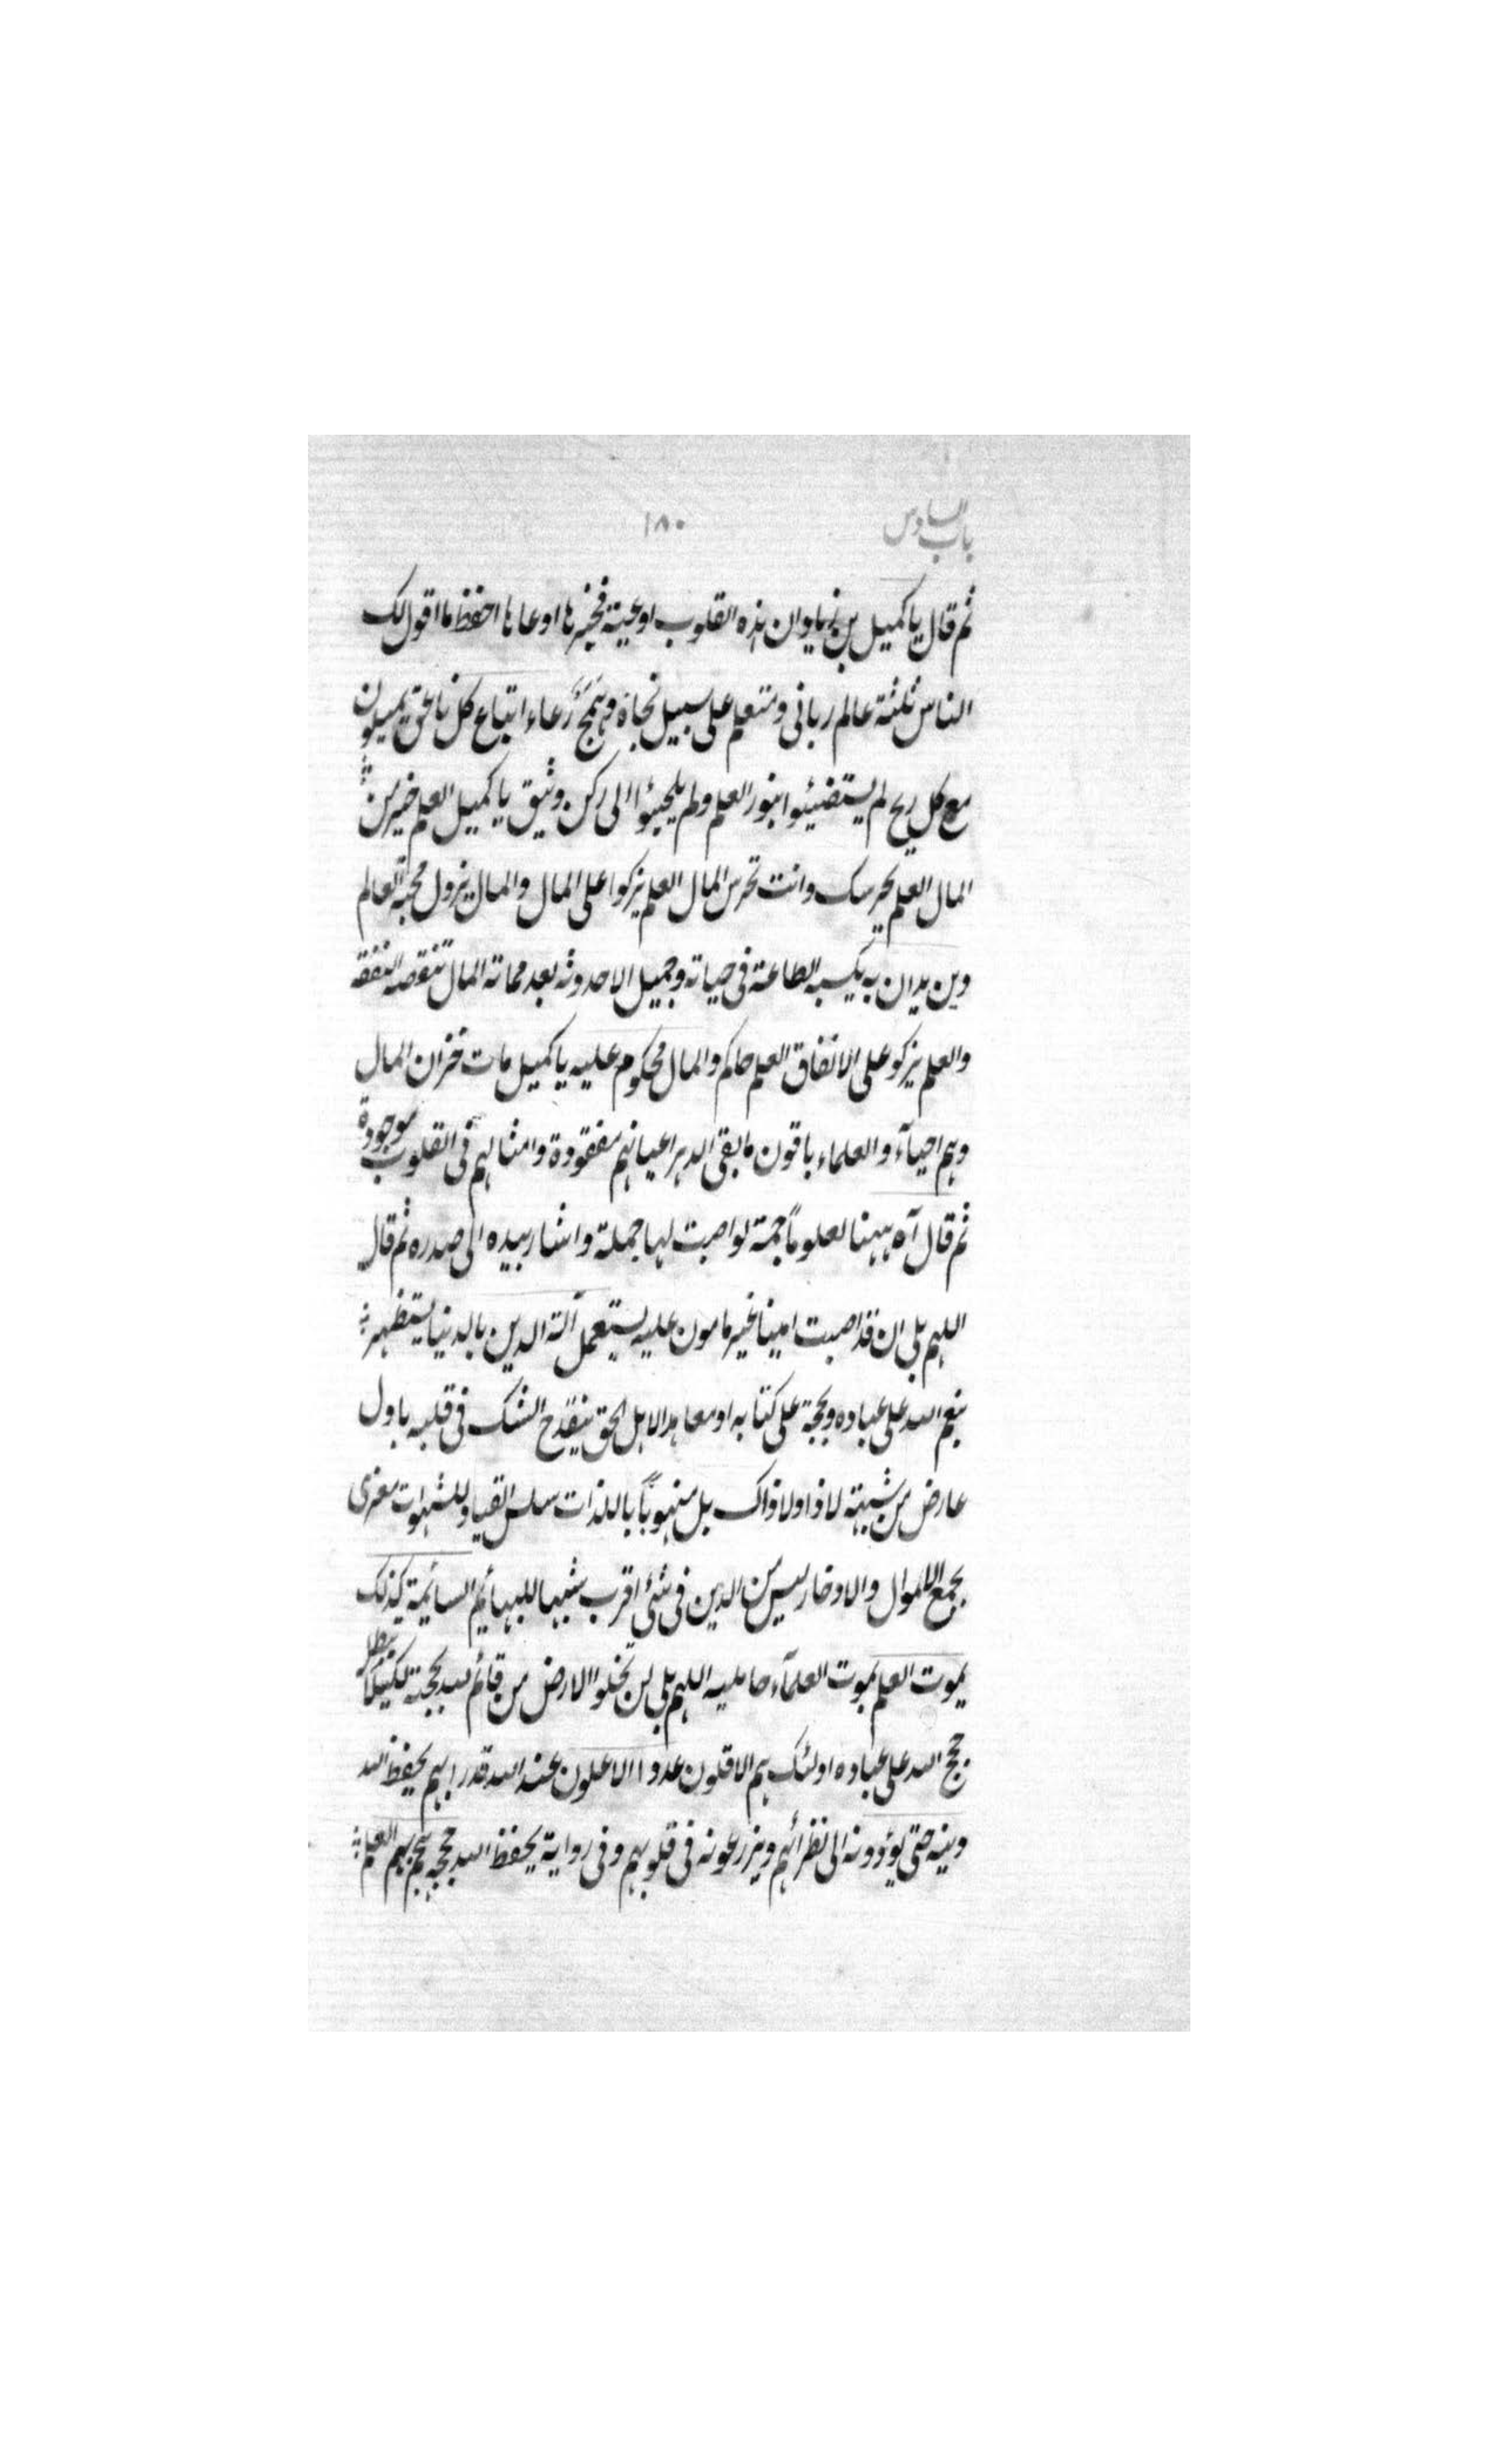 باب السادس
١٨٠
ثم قال يا كميل بن زياد ان هذه القلوب اوعية فخيرها اوعاها احفظ ما اقول لك
الناس ثلثة عالم رباني ومتعلم على سبيل نجاة وهمج رعاء اتباع كل ناعق يميلون
مع كل ريح لم يستضيئوا بنور العلم ولم يلجئوا الى ركن وثيق يا كميل العلم خير من
المال العلم يحرسك وانت تحرس المال العلم يزكوا على المال والمال يزول محبة العالم
دين يدان به يكسبه الطاعة في حياته وجميل الاحدوثة بعد مماته المال تنقصه النفقة
والعلم يزكو على الانفاق العلم حاكم والمال محكوم عليه يا كميل مات خزان المال
وهم احيآء والعلماء باقون ما بقى الدهر اعيانهم مفقودة وامثالهم في القلوب موجودة
ثم قال آه ههنا لعلوماً جمة لو اصبت لها حملة واشار بيده الى صدره ثم قال
اللهم بلى ان قد اصبت امينا غير مامون عليه يستعمل آلة الدين بالدنيا يستظهر
بنعم الله على عباده وبحجة على كتابه او معاهد الاهل الحق ينقدح الشك في قلبه باول
عارض من شبهة لا ذا ولا ذاك بل منهوبًا باللذات سلس القياد للشهوات مغرى
بجمع الاموال والادخار ليس من الدين في شئ اقرب شبها للبهائم السائمة كذلك
يموت العلم بموت العلمآء حامليه اللهم بلى لن تخلوا الارض من قائم لله بحجة لكيلا تبطل
حجج الله على عباده اولئك هم الاقلون عددا الاعلون عند الله قدرا بهم يحفظ الله
دينه حتى يؤدونه الى نظرائهم ويزرعونه في قلوبهم وفي رواية يحفظ الله حججه هجم بهم العلم